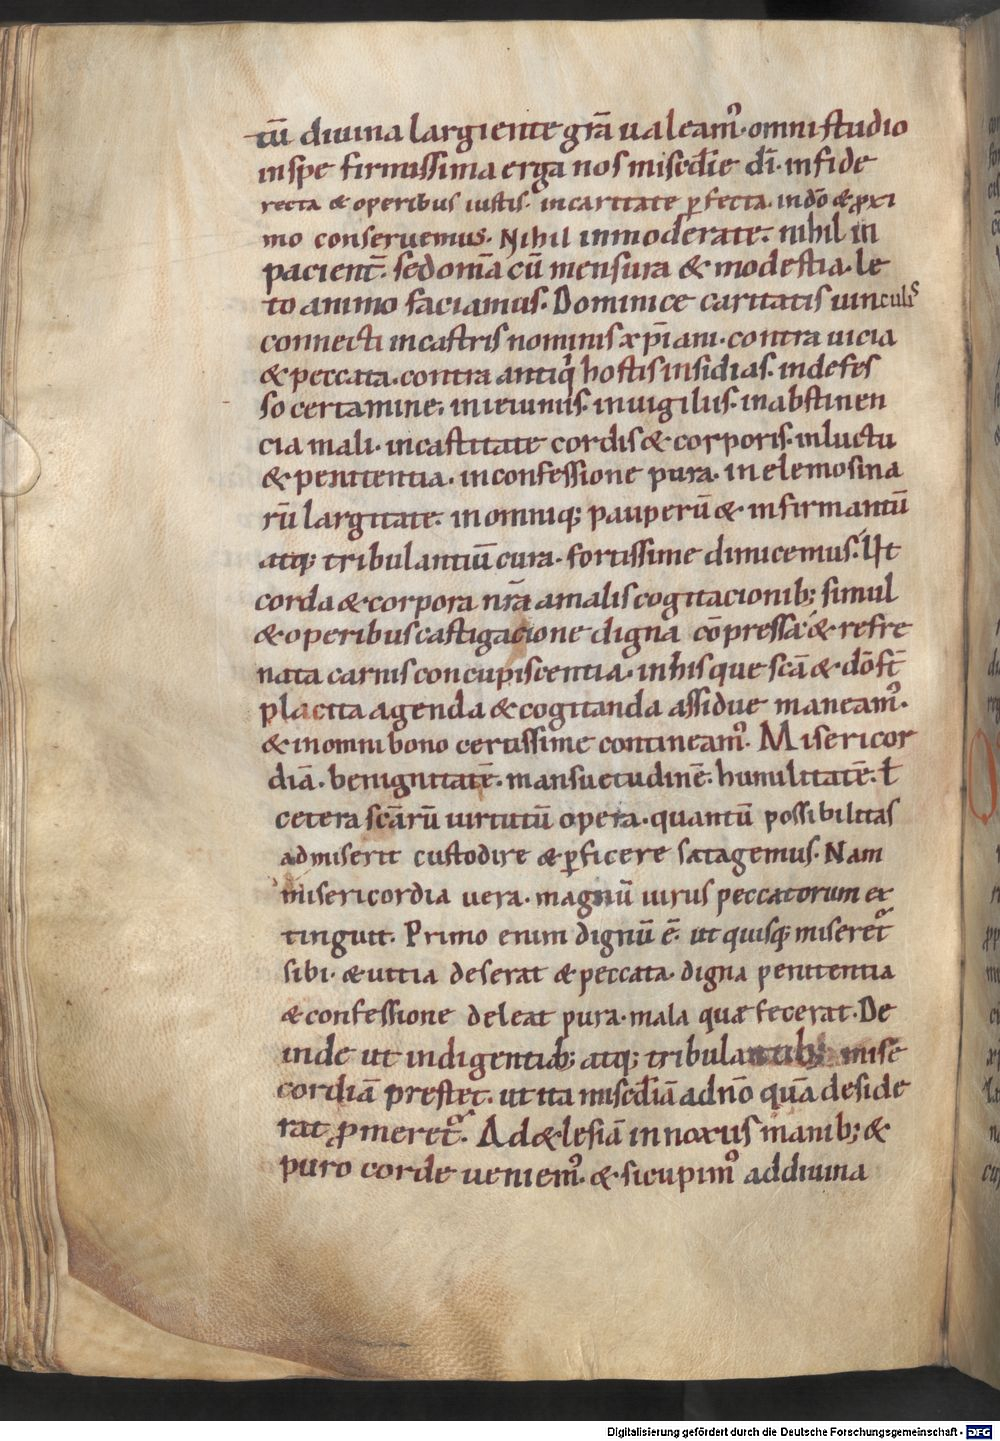 tū diuina largiente grā ualeam᷒· omni studio
in spe firmissima erga nos misedīe dī· in fide
recta & operibus iustis· in caritate ꝑfecta· in dō & ꝓxi
mo conseruemus· Nihil inmoderate· nihil in
pacient̄· sed om̄a cū mensura & modestia· le
to animo faciamus· Dominice caritatis uinculis
connecti in castris nominis xp̄iani· contra uicia
& peccata· contra antiqⁱ hostis insidias· indefes
so certamine· in ieiuniis· in uigiliis· in abstinen
cia mali· in castitate cordis & corporis· in luctu
& penitentia· in confessione pura· in elemosina
rū largitate· in omniq; pauperū & infirmantū
atq; tribulantiū cura· fortissime dimicemus· Ut
corda & corpora nr̄a a malis cogitacionib; simul
& operibus castigacione digna cōpressa· & refre
nata carnis concupiscentia· in his que scā & dō st̄
placita agenda & cogitanda assidue maneam᷒·
& in omni bono certissime contineam᷒· Misericor
diā· benignitatē· mansuetudinē· humilitatē· ł
cetera scārū uirtutū opera· quantū possibilitas
admiserit custodire & ꝑficere satagemus· Nam
misericordia uera· magnū uirus peccatorum ex
tinguit· Primo enim dignū ē· ut quisq; miseret᷑
sibi· & uitia deserat & peccata· digna penitentia
& confessione deleat pura· mala quæ fecerat· De
inde ut indigentib; atq; tribulantib; mise
cordiā prestet· ut ita misedīā ad nō quā deside
rat ꝓmeret᷑· Ad æclesiā innoxiis manib; &
puro corde ueniem᷒· & si cupim᷒ ad diuina
Digitalisierung gefördert durch die Deutsche Forschungsgemeinschaft - DFG